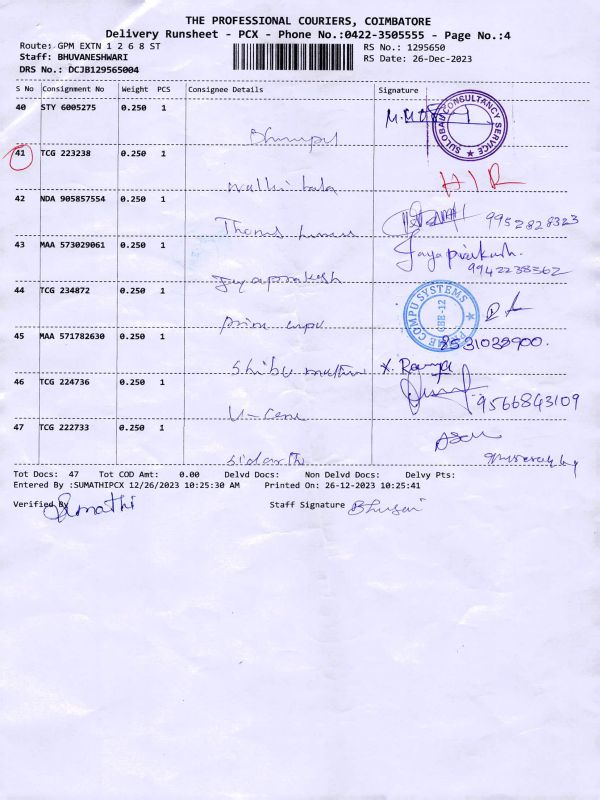 THE PROFESSIONAL COURIERS, COIMBATORE
Delivery Runsheet - PCX - Phone No.:0422-3505555 - Page No.:4
Route: GPM EXTN 1 2 6 8 ST
RS No.: 1295650
Staff: BHUVANESHWARI
RS Date: 26-Dec-2023
DRS No.: DCJB129565004
S No Consignment No Weight PCS Consignee Details Signature
40 STY 6005275 0.250 1
SULOBAU CONSULTANCY SERVICE
41 TCG 223238 0.250 1
42 NDA 905857554 0.250 1
Thomas 9952828323
43 MAA 573029061 0.250 1
Jayaprakash.
9942238362
Jayaprakash
44 TCG 234872 0.250 1
COMPU SYSTEMS CBE-12
45 MAA 571782630 0.250 1
8531039900.
Shibu X. Ramya
46 TCG 224736 0.250 1
9566843109
U-Cane
47 TCG 222733 0.250 1
Sidarth
Tot Docs: 47 Tot COD Amt: 0.00 Delvd Docs: Non Delvd Docs: Delvy Pts:
Entered By :SUMATHIPCX 12/26/2023 10:25:30 AM Printed On: 26-12-2023 10:25:41
Verified By Sumathi Staff Signature Bhuvan